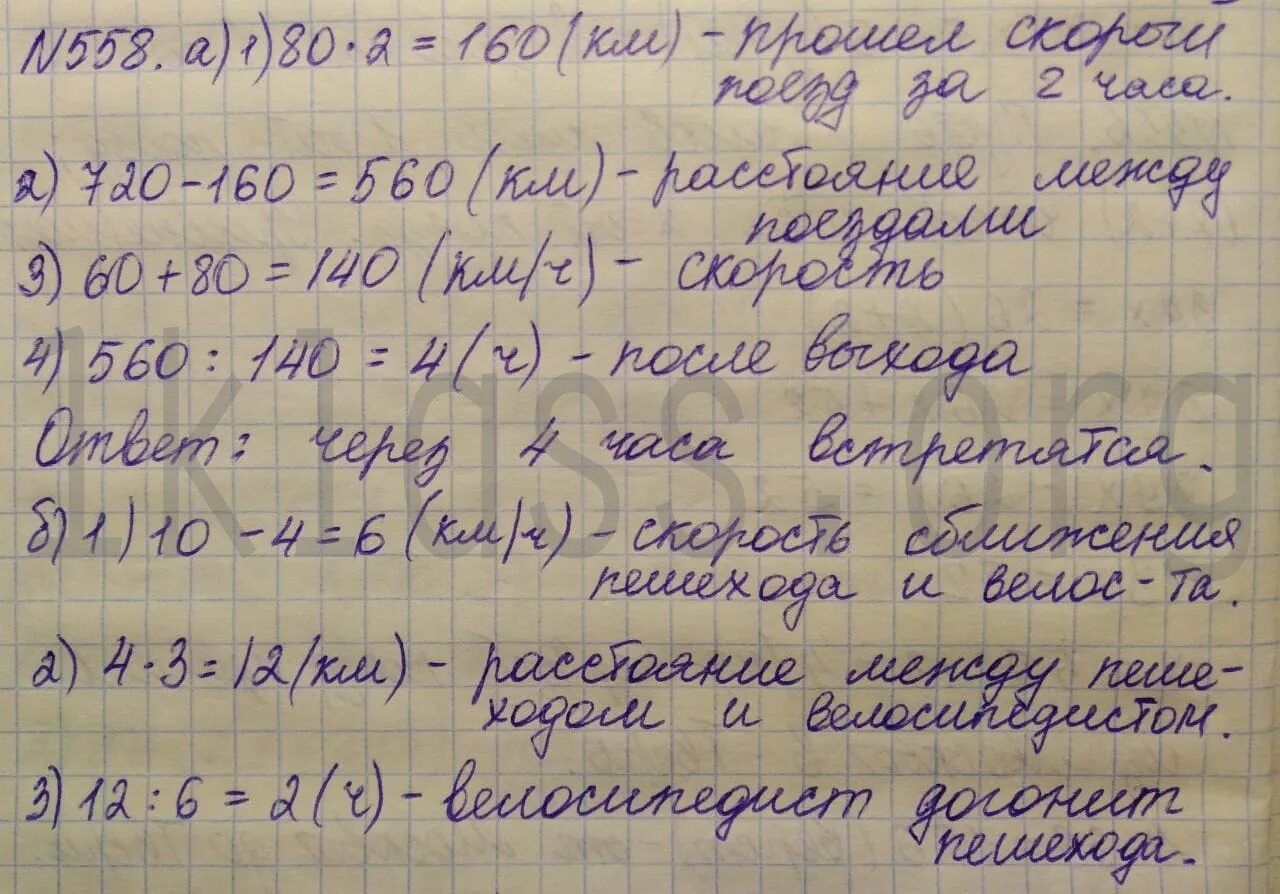 N558. а) 1) 80 · 2 = 160 (км) - прошел скорый
поезд за 2 часа.
2) 720 - 160 = 560 (км) - расстояние между
поездами
3) 60 + 80 = 140 (км/ч) - скорость
4) 560 : 140 = 4 (ч) - после выхода
Ответ: через 4 часа встретятся.
б) 1) 10 - 4 = 6 (км/ч) - скорость сближения
пешехода и велос-та.
2) 4 · 3 = 12 (км) - расстояние между пеше-
ходом и велосипедистом.
3) 12 : 6 = 2 (ч) - велосипедист догонит
пешехода.
1klass.org